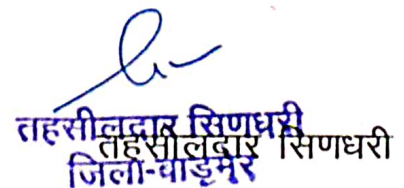 तहसीलदार सिणधरी
तहसीलदार सिणधरी
जिला-बाड़मेर